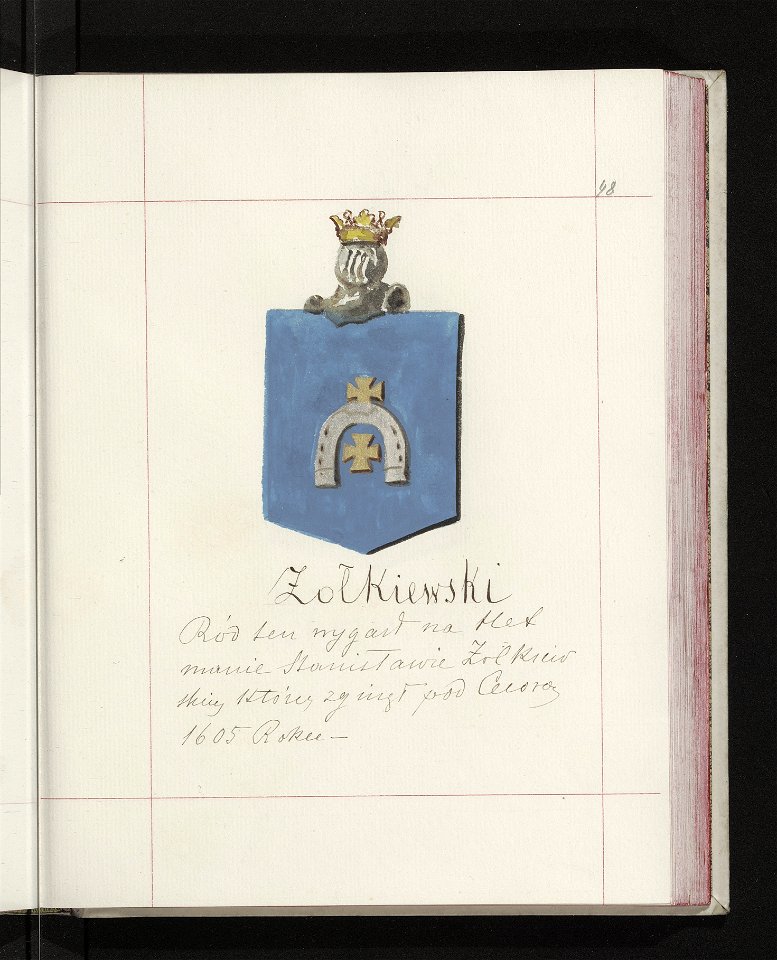 98
Zołkiewski
Ród ten wygasł na Het
manie Stanisławie Zołkiew
skim który zginął pod Cecorą
1605 Roku —